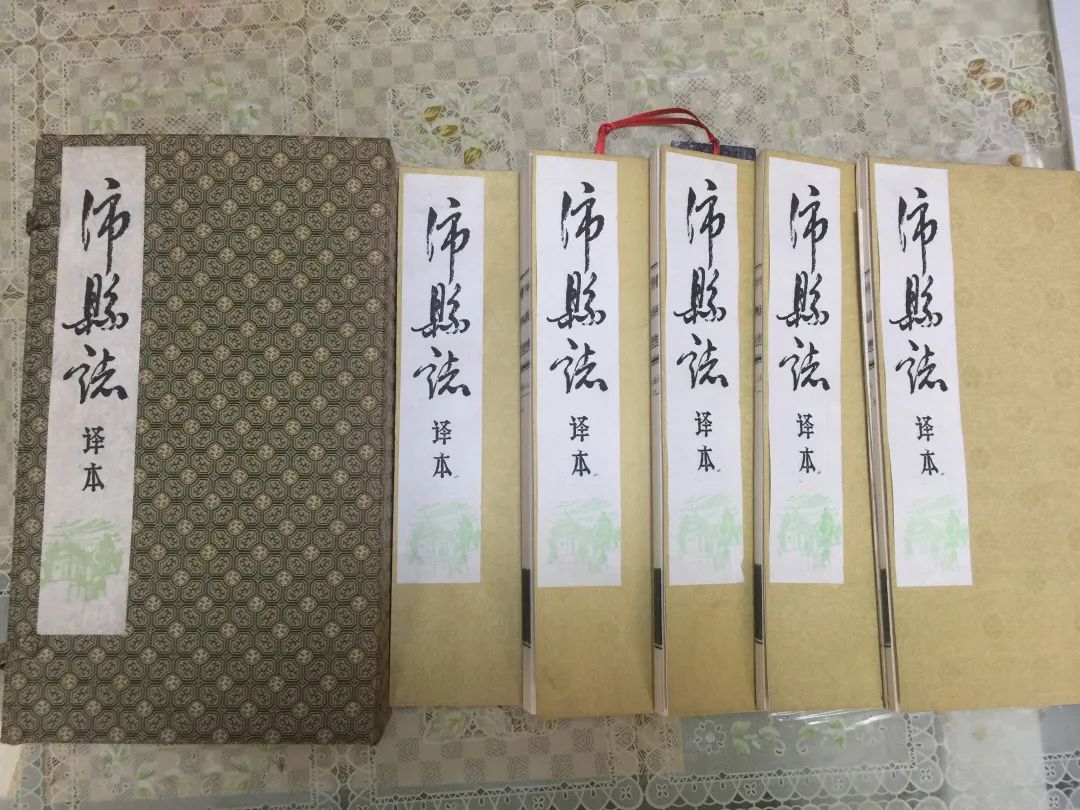 沛縣誌 译本
沛縣誌 译本
沛縣誌 译本
沛縣誌 译本
沛縣誌 译本
沛縣誌 译本